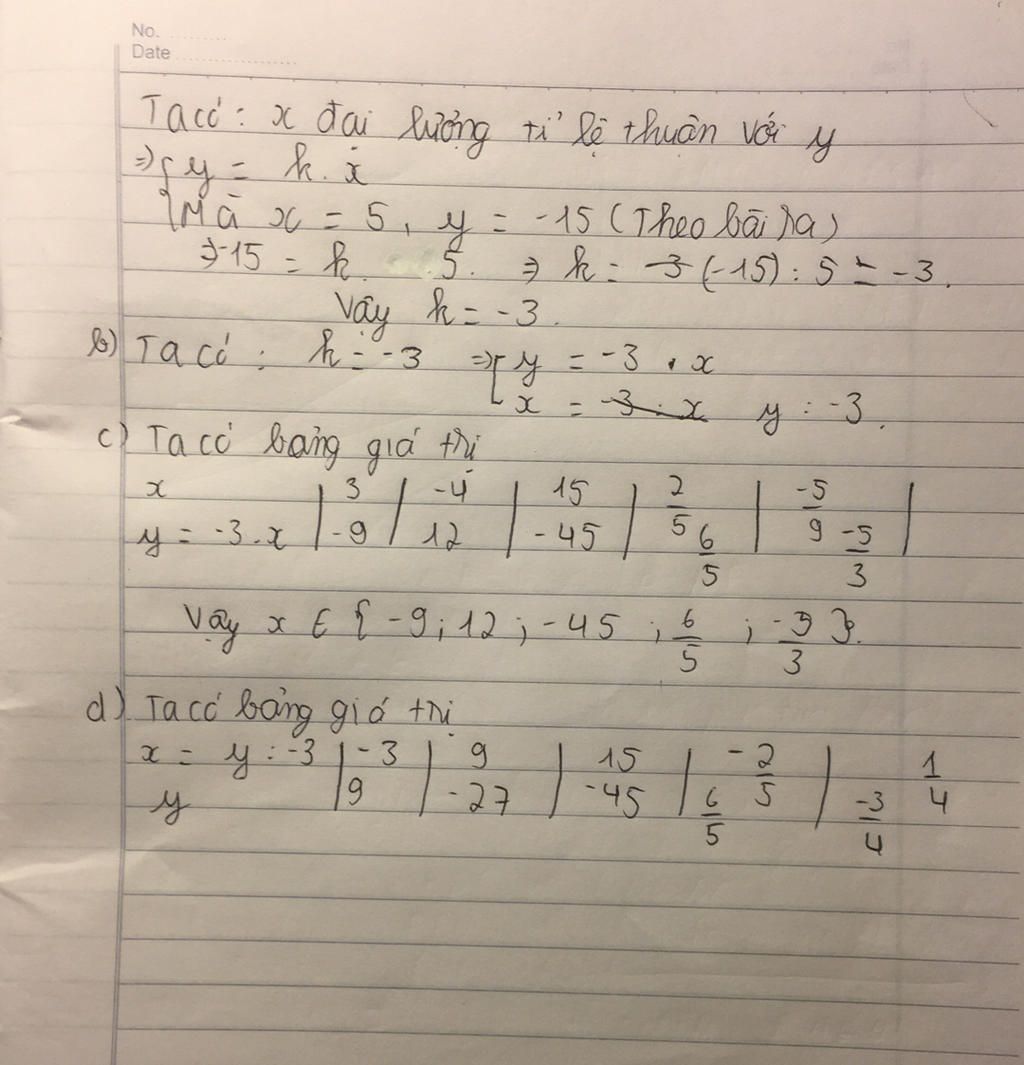 No.
Date
Ta có: x đại lượng tỉ lệ thuận với y
=> { y = k . x
Mà x = 5, y = -15 (Theo bài ra)
=> -15 = k. 5. => k = -3 (-15) : 5 = -3.
Vậy k = -3.
b) Ta có: k = -3 => [ y = -3 . x
x = -3 . x y : -3.
c) Ta có bảng giá trị
x | 3 | -4 | 15 | 2/5 | -5/9 |
y = -3.x | -9 | 12 | -45 | 6/5 | -5/3 |
Vậy x ∈ { -9; 12; -45; 6/5; /3 }.
d) Ta có bảng giá trị
x = y : -3 | -3 | 9 | 15 | -2/5 | 1/4
y | 9 | -27 | -45 | 6/5 | -3/4